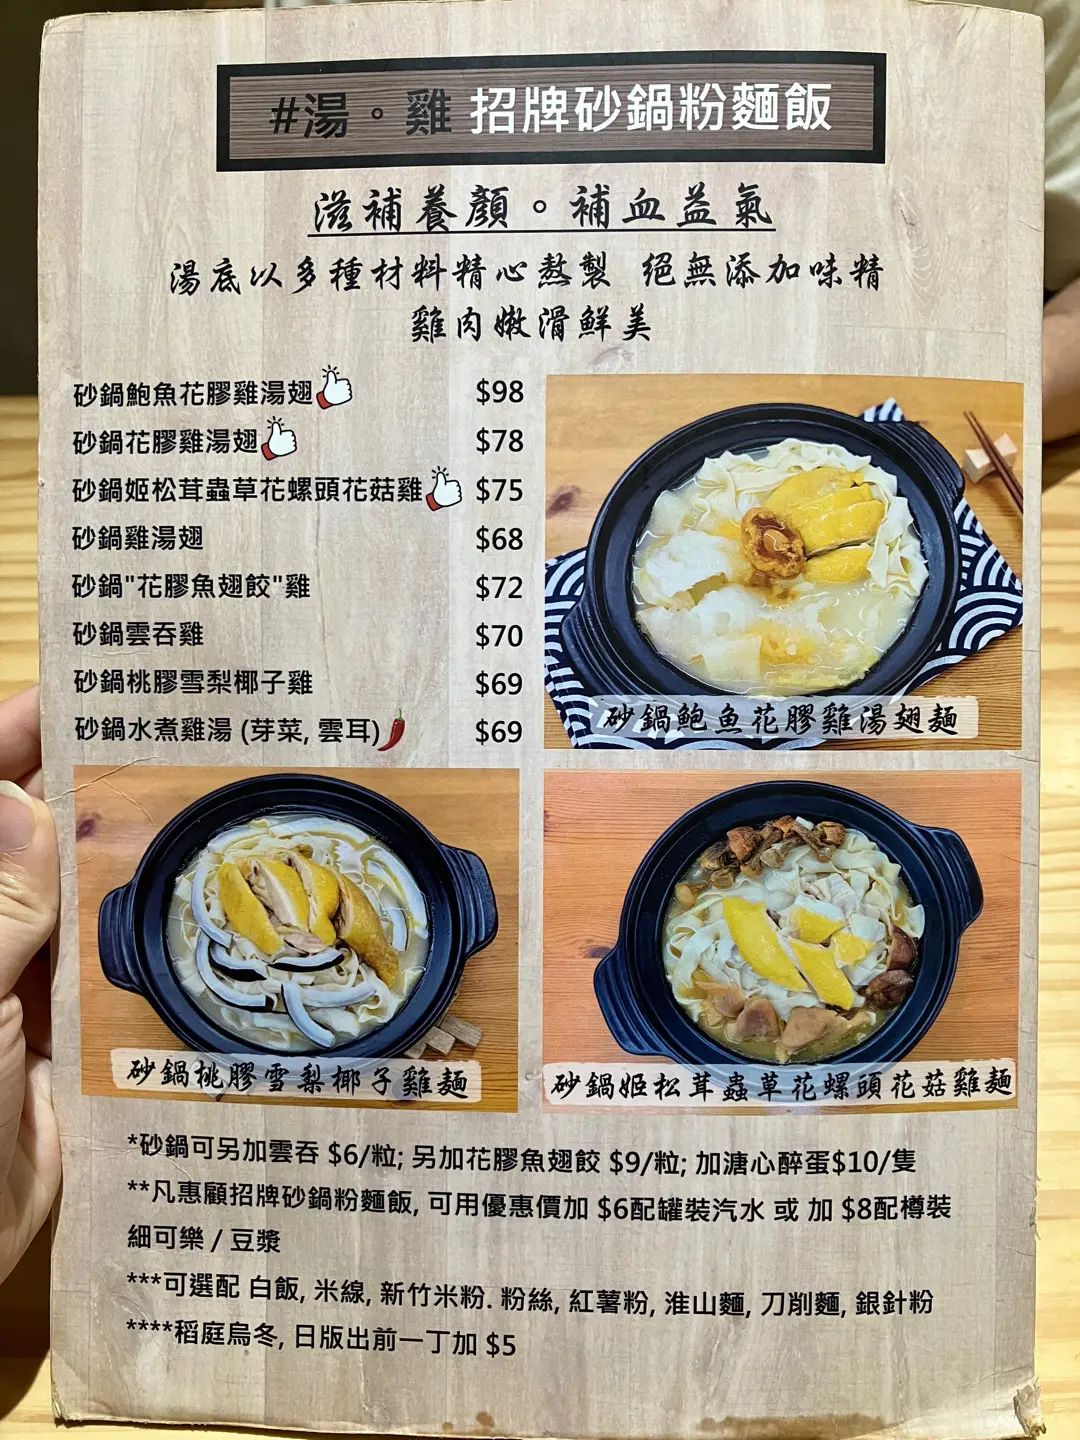 #湯。雞 招牌砂鍋粉麵飯
滋補養顏。補血益氣
湯底以多種材料精心熬製 絕無添加味精
雞肉嫩滑鮮美
砂鍋鮑魚花膠雞湯翅 $98
砂鍋花膠雞湯翅 $78
砂鍋姬松茸蟲草花螺頭花菇雞 $75
砂鍋雞湯翅 $68
砂鍋"花膠魚翅餃"雞 $72
砂鍋雲吞雞 $70
砂鍋桃膠雪梨椰子雞 $69
砂鍋水煮雞湯 (芽菜, 雲耳) $69
砂鍋鮑魚花膠雞湯翅麵
砂鍋桃膠雪梨椰子雞麵
砂鍋姬松茸蟲草花螺頭花菇雞麵
*砂鍋可另加雲吞 $6/粒; 另加花膠魚翅餃 $9/粒; 加溏心醉蛋$10/隻
**凡惠顧招牌砂鍋粉麵飯, 可用優惠價加 $6配罐裝汽水 或 加 $8配樽裝
細可樂 / 豆漿
***可選配 白飯, 米線, 新竹米粉. 粉絲, 紅薯粉, 淮山麵, 刀削麵, 銀針粉
****稻庭烏冬, 日版出前一丁加 $5